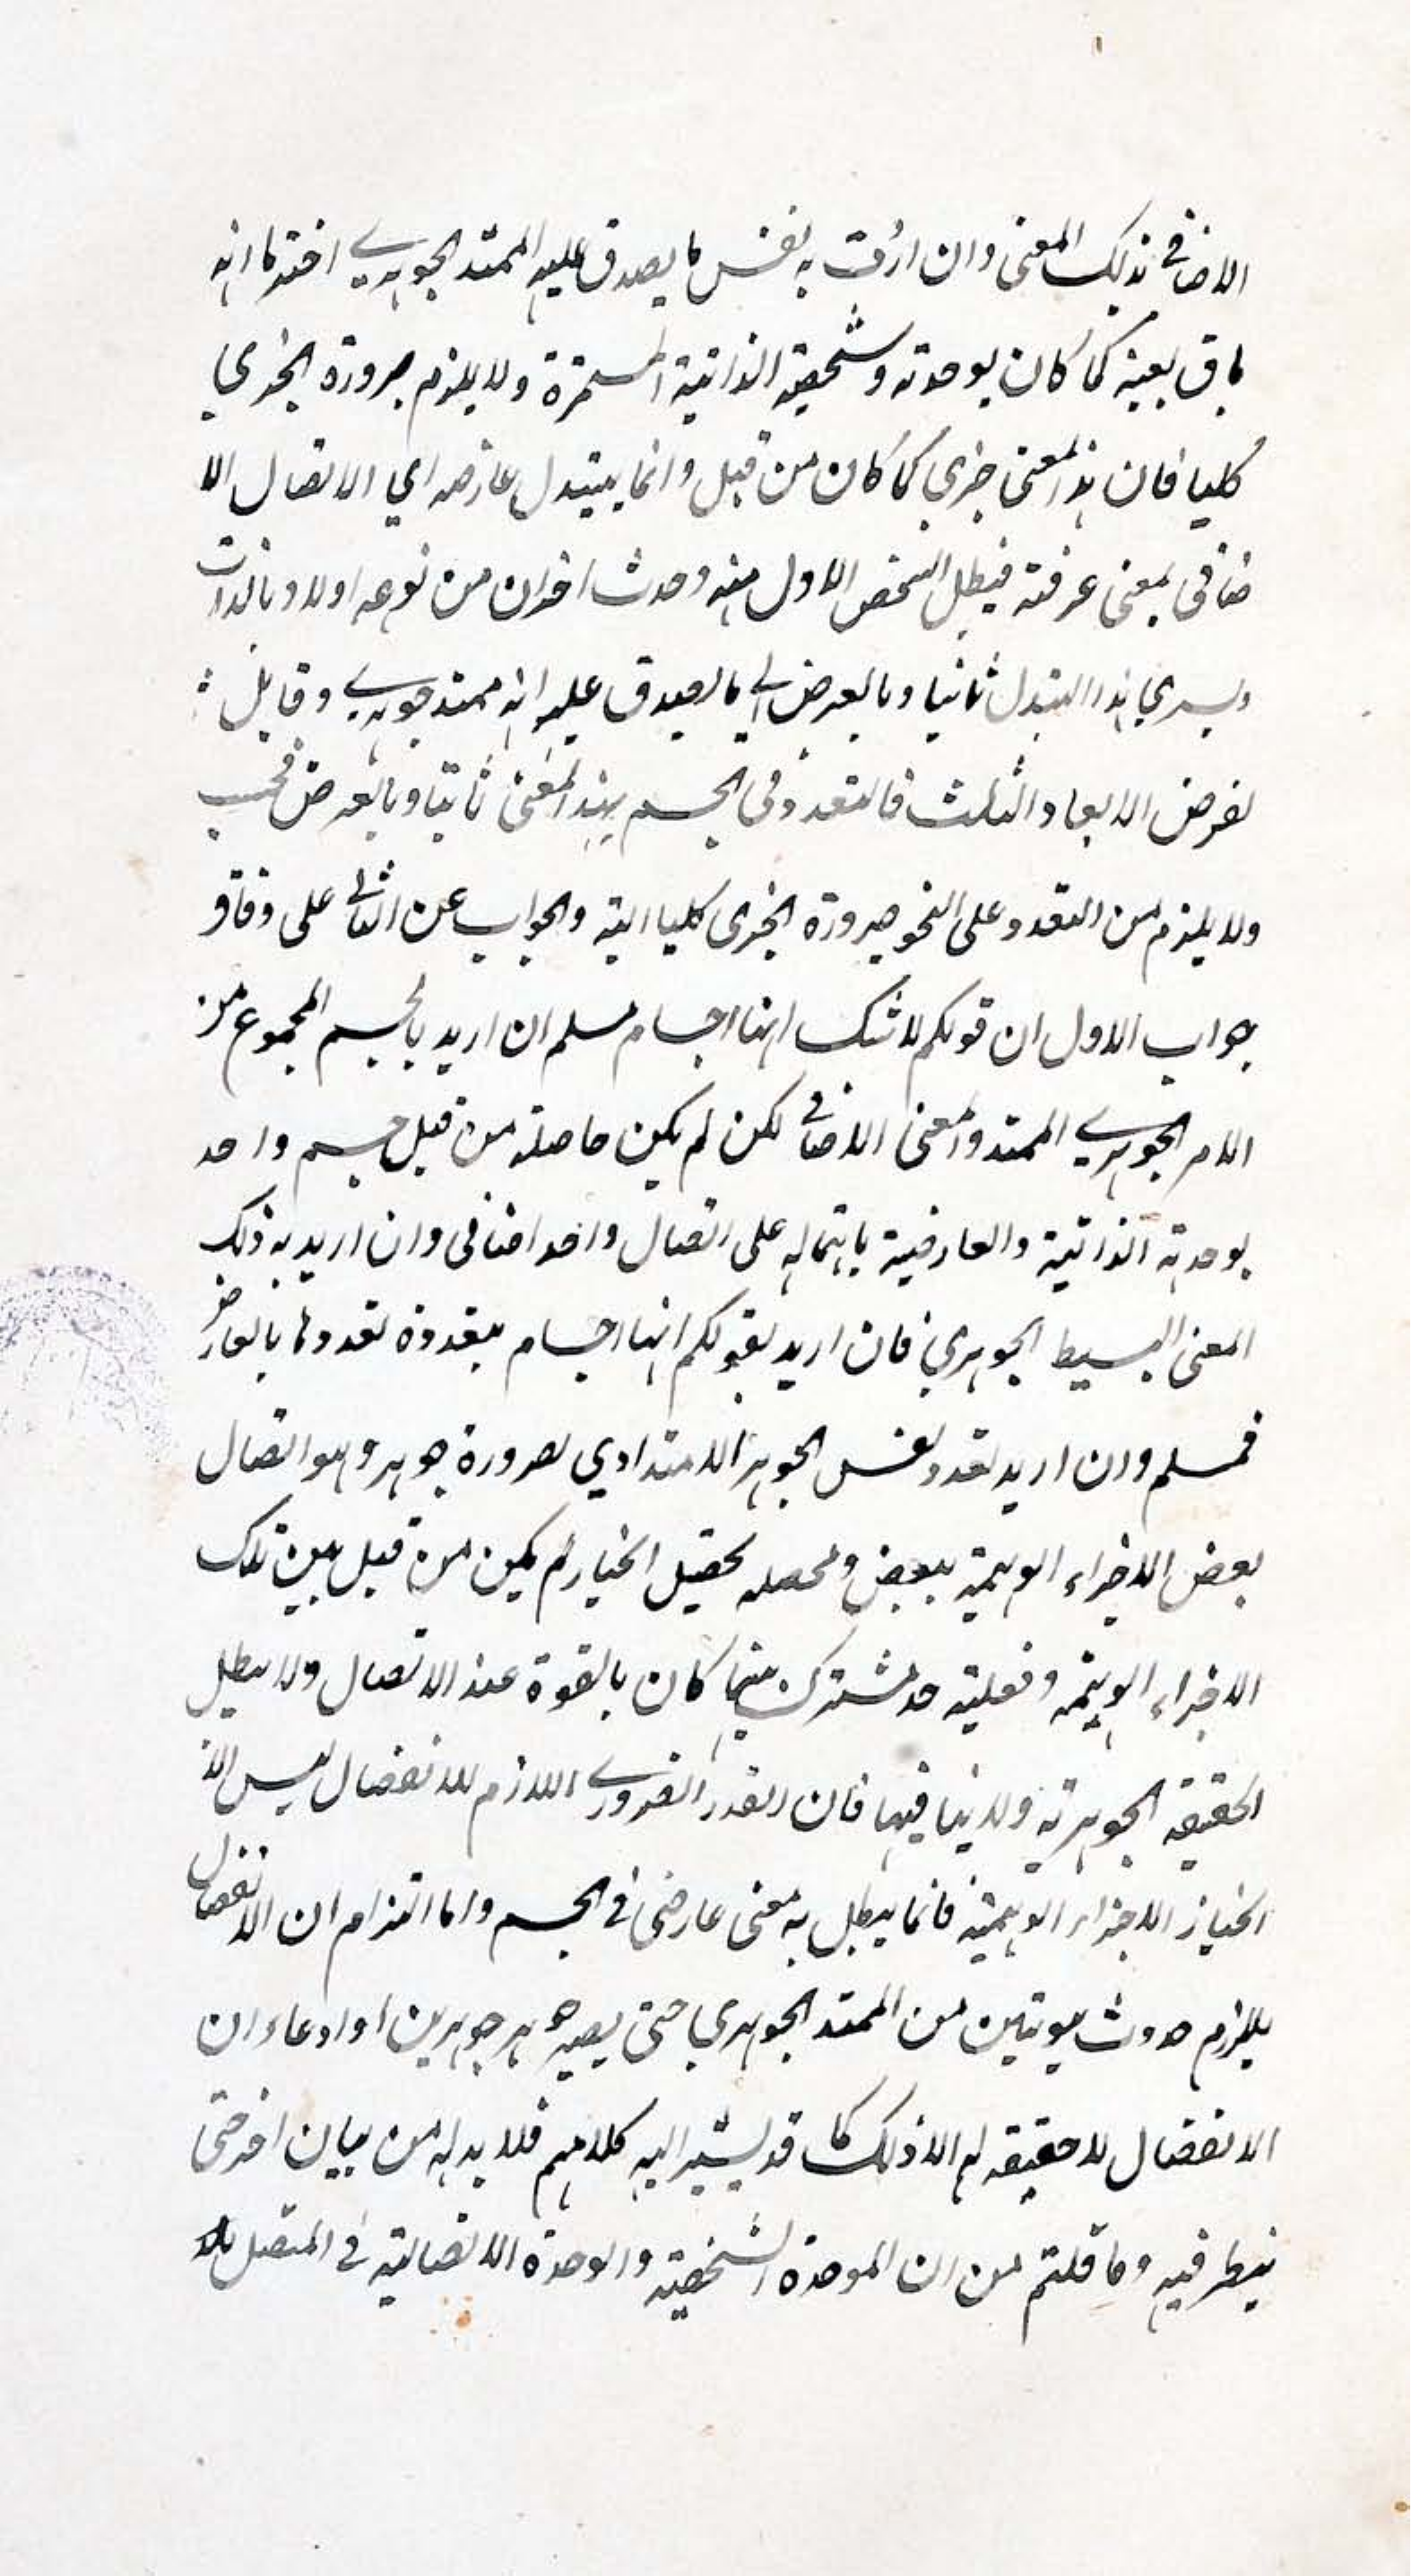 الاضافي بذلك المعنى وان اردت به نفس ما يصدق عليه الممتد الجوهري اخترنا انه
باق بعينه كما كان بوحدته وشخصيته الذاتية المستمرة ولا يلزم صرورة الجزي
كليا فان هذا المعنى جزي كما كان من قبل وانما يتبدل عارضه اي الاتصال الا
ضافي بمعنى عرفته فيبطل الشخص الاول منه وحدث اخران من نوعه اولا وبالذات
ويسري هذا التبدل ثانيا وبالعرض الى ما يصدق عليه انه ممتد جوهري وقابل
لفرض الابعاد الثلث فالتعدد في الجسم بهذا المعنى ثانيا وبالعرض فحسب
ولا يلزم من التعدد على النحو صيرورة الجزى كليا البتة والجواب عن الثاني على وفاق
جواب الاول ان قولكم لا شك انها اجسام مسلم ان اريد بالجسم المجموع من
الامر الجوهري الممتد والمعنى الاضافي لكن لم يكن حاصلة من قبل جسم واحد
بوحدته الذاتية والعارضية باشتماله على اتصال واحد اضافى وان اريد به ذلك
المعنى البسيط الجوهري فان اريد بقولكم انها اجسام متعددة تعددها بالعارض
فمسلم وان اريد تعدد نفس الجوهر الامتدادي لصرورة جوهر وهو اتصال
بعض الاجزاء الوهمية ببعض ومحصله تحصيل انحياز لم يكن من قبل بين تلك
الاجزاء الوهمية وفعلية حد مشترك بينها كان بالقوة عند الاتصال ولا يبطل
الحقيقة الجوهرية ولا ينافيها فان القدر الضروري اللازم للانفصال ليس الا
انحياز الاجزاء الوهمية فانما يبطل به معنى عارضى في الجسم واما التزام ان الانفصال
يلزم حدوث هويتين من الممتد الجوهري حتى يصير جوهر جوهرين او ادعاء ان
الانفصال لا حقيقة له الا ذلك كما قد يشير اليه كلامهم فلا بد له من بيان اخر حتى
ينظر فيه وما قلتم من ان الوحدة الشخصية والوحدة الاتصالية في المتصل